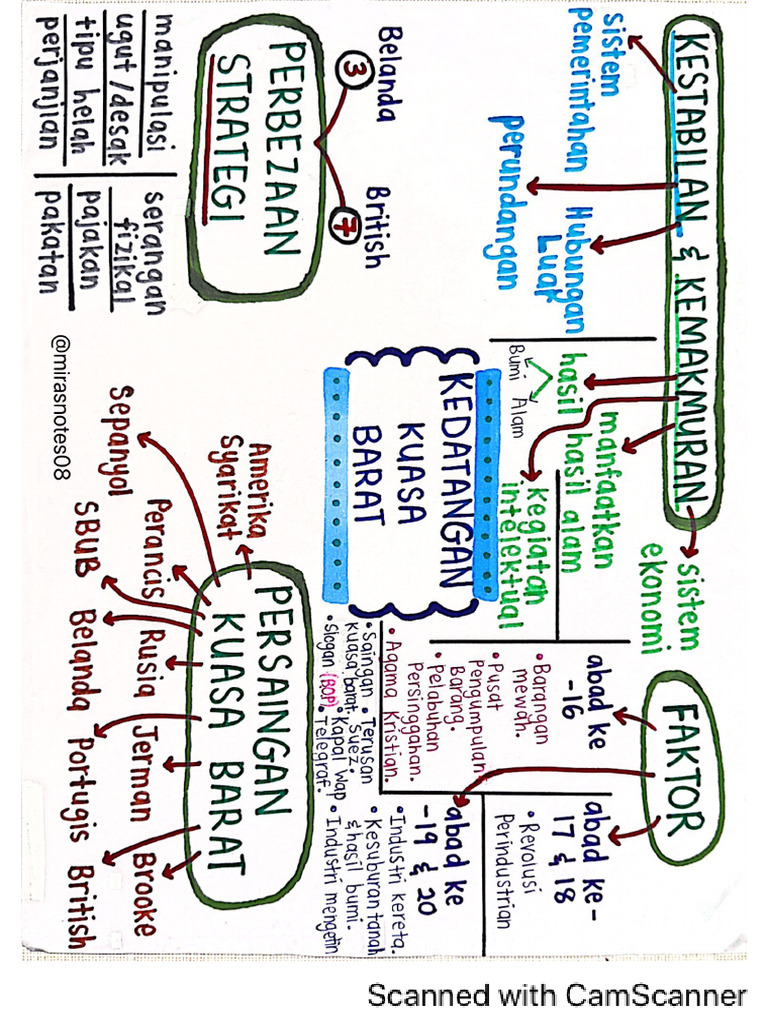 KESTABILAN & KEMAKMURAN
sistem
pemerintahan
perundangan
Hubungan
Luar
hasil
Bumi
Alam
manfaatkan
hasil alam
kegiatan
intelektual
sistem
ekonomi
FAKTOR
abad ke
-16
• Barangan
mewah.
• Pusat
Pengumpulan
Barang.
• Pelabuhan
Persinggahan.
• Agama Kristian.
abad ke-
17 & 18
• Revolusi
Perindustrian
abad ke
-19 & 20
• Industri kereta.
• Kesuburan tanah
& hasil bumi.
• Industri mengetin
• Saingan
kuasa barat
• Slogan (BOP)
• Terusan
Suez.
• Kapal Wap
• Telegraf.
KEDATANGAN
KUASA
BARAT
PERBEZAAN
STRATEGI
Belanda
3
British
7
manipulasi
ugut/desak
tipu helah
perjanjian
serangan
fizikal
pajakan
pakatan
PERSAINGAN
KUASA BARAT
Amerika
Syarikat
Sepanyol
Perancis
SBUB
Rusia
Belanda
Jerman
Portugis
Brooke
British
@mirasnotes08
Scanned with CamScanner